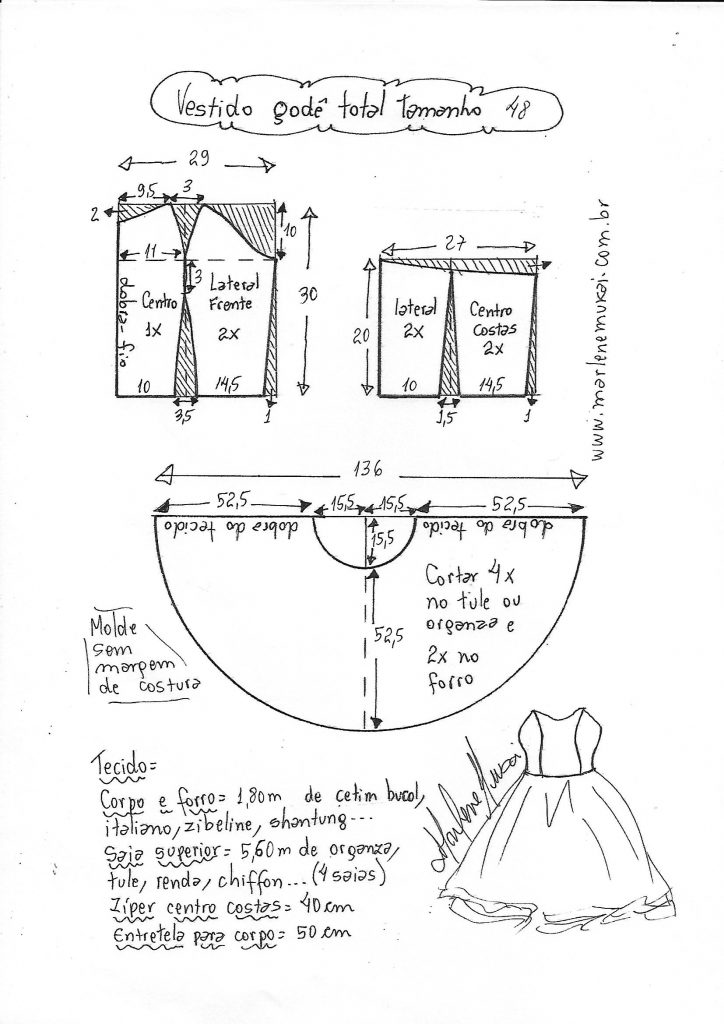 Vestido godê total tamanho 48
29
9,5
3
2
10
11
3
30
dobra-fio
Centro
1x
Lateral
Frente
2x
10
14,5
3,5
1
27
20
lateral
2x
Centro
costas
2x
10
14,5
1,5
1
www.marlenemukai.com.br
136
52,5
15,5
15,5
52,5
dobra do tecido
dobra do tecido
15,5
52,5
Cortar 4x
no tule ou
organza e
2x no
forro
Molde
sem
margem
de costura
Tecido=
Corpo e forro= 1,80m de cetim bucol,
italiano, zibeline, shantung...
Saia superior= 5,60m de organza,
tule, renda, chiffon... (4 saias)
Zíper centro costas= 40cm
Entretela para corpo= 50cm
Marlene Mukai